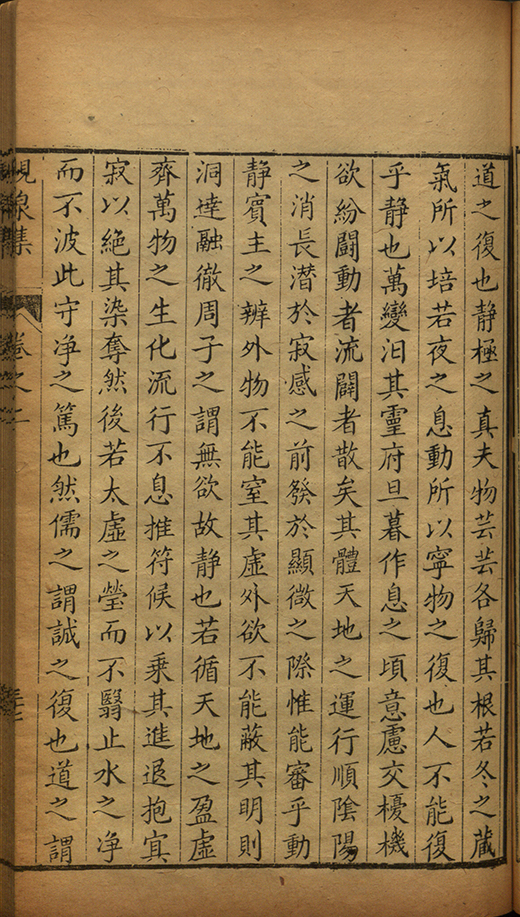 道之復也静極之真夫物芸芸各歸其根若冬之蔵
氣所以培若夜之息動所以寧物之復也人不能復
乎静也萬變汩其靈府旦暮作息之頃意慮交櫌機
欲紛闘動者流闢者散矣其體天地之運行順隂陽
之消長潜於寂感之前發於顯微之際惟能審乎動
静賓主之辨外物不能室其虛外欲不能蔽其明則
洞逹融徹周子之謂無欲故静也若循天地之盈虛
齊萬物之生化流行不息推符候以乗其進退抱寘
寂以絶其染奪然後若太虛之瑩而不翳止水之净
而不波此守净之篤也然儒之謂誠之復也道之謂
峴泉集
卷之二